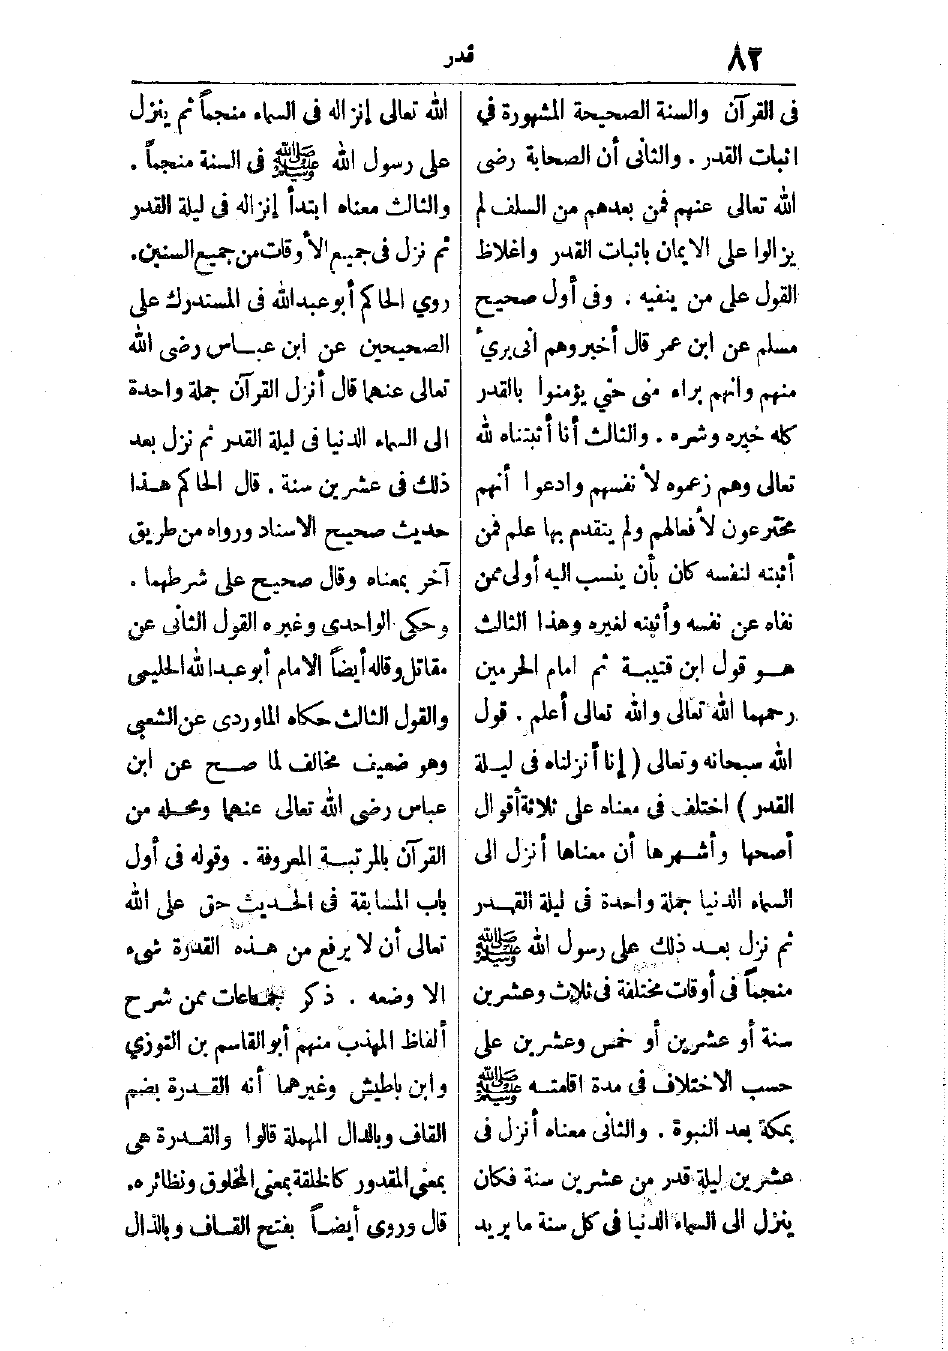 ٨٢
قدر
فى القرآن والسنة الصحيحة المشهورة في
اثبات القدر . والثانى أن الصحابة رضى
الله تعالى عنهم فمن بعدهم من السلف لم
يزالوا على الايمان باثبات القدر واغلاظ
القول على من ينفيه . وفى أول صحيح
مسلم عن ابن عمر قال أخبروهم انى برىء
منهم وانهم براء منى حتى يؤمنوا بالقدر
كله خيره وشره . والثالث أنا أثبتناه لله
تعالى وهم زعموه لأنفسهم وادعوا أنهم
مخترعون لأفعالهم ولم يتقدم بها علم فمن
أثبته لنفسه كان بأن ينسب اليه أولى ممن
نفاه عن نفسه وأثبته لغيره وهذا الثالث
هو قول ابن قتيبة ثم امام الحرمين
رحمهما الله تعالى والله تعالى أعلم . قول
الله سبحانه وتعالى ( إنا أنزلناه فى ليلة
القدر ) اختلف فى معناه على ثلاثة أقوال
أصحها وأشهرها أن معناها أنزل الى
السماء الدنيا جملة واحدة فى ليلة القدر
ثم نزل بعد ذلك على رسول الله ﷺ
منجماً فى أوقات مختلفة فى ثلاث وعشرين
سنة أو عشرين أو خمس وعشرين على
حسب الاختلاف فى مدة اقامته ﷺ
بمكة بعد النبوة . والثانى معناه أنزل فى
عشرين ليلة قدر من عشرين سنة فكان
ينزل الى السماء الدنيا فى كل سنة ما يريد
الله تعالى إنزاله فى السماء منجماً ثم ينزل
على رسول الله ﷺ فى السنة منجماً .
والثالث معناه ابتدأ إنزاله فى ليلة القدر
ثم نزل فى جميع الأوقات من جميع السنين.
روي الحاكم أبو عبدالله فى المستدرك على
الصحيحين عن ابن عباس رضى الله
تعالى عنهما قال أنزل القرآن جملة واحدة
الى السماء الدنيا فى ليلة القدر ثم نزل بعد
ذلك فى عشرين سنة . قال الحاكم هذا
حديث صحيح الاسناد ورواه من طريق
آخر بمعناه وقال صحيح على شرطهما .
وحكى الواحدى وغيره القول الثانى عن
مقاتل وقاله أيضاً الامام أبو عبدالله الحليمى
والقول الثالث حكاه الماوردى عن الشعبي
وهو ضعيف مخالف لما صح عن ابن
عباس رضى الله تعالى عنهما ومحله من
القرآن بالمرتبة المعروفة . وقوله فى أول
باب المسابقة فى الحديث حق على الله
تعالى أن لا يرفع من هذه القدرة شىء
الا وضعه . ذكر جماعات ممن شرح
ألفاظ المهذب منهم أبو القاسم بن التوزي
وابن باطيش وغيرهما أنه القدرة بضم
القاف وبالدال المهملة قالوا والقدرة هى
بمعنى المقدور كالخلقة بمعنى المخلوق ونظائره.
قال وروى أيضاً بفتح القاف وبالذال